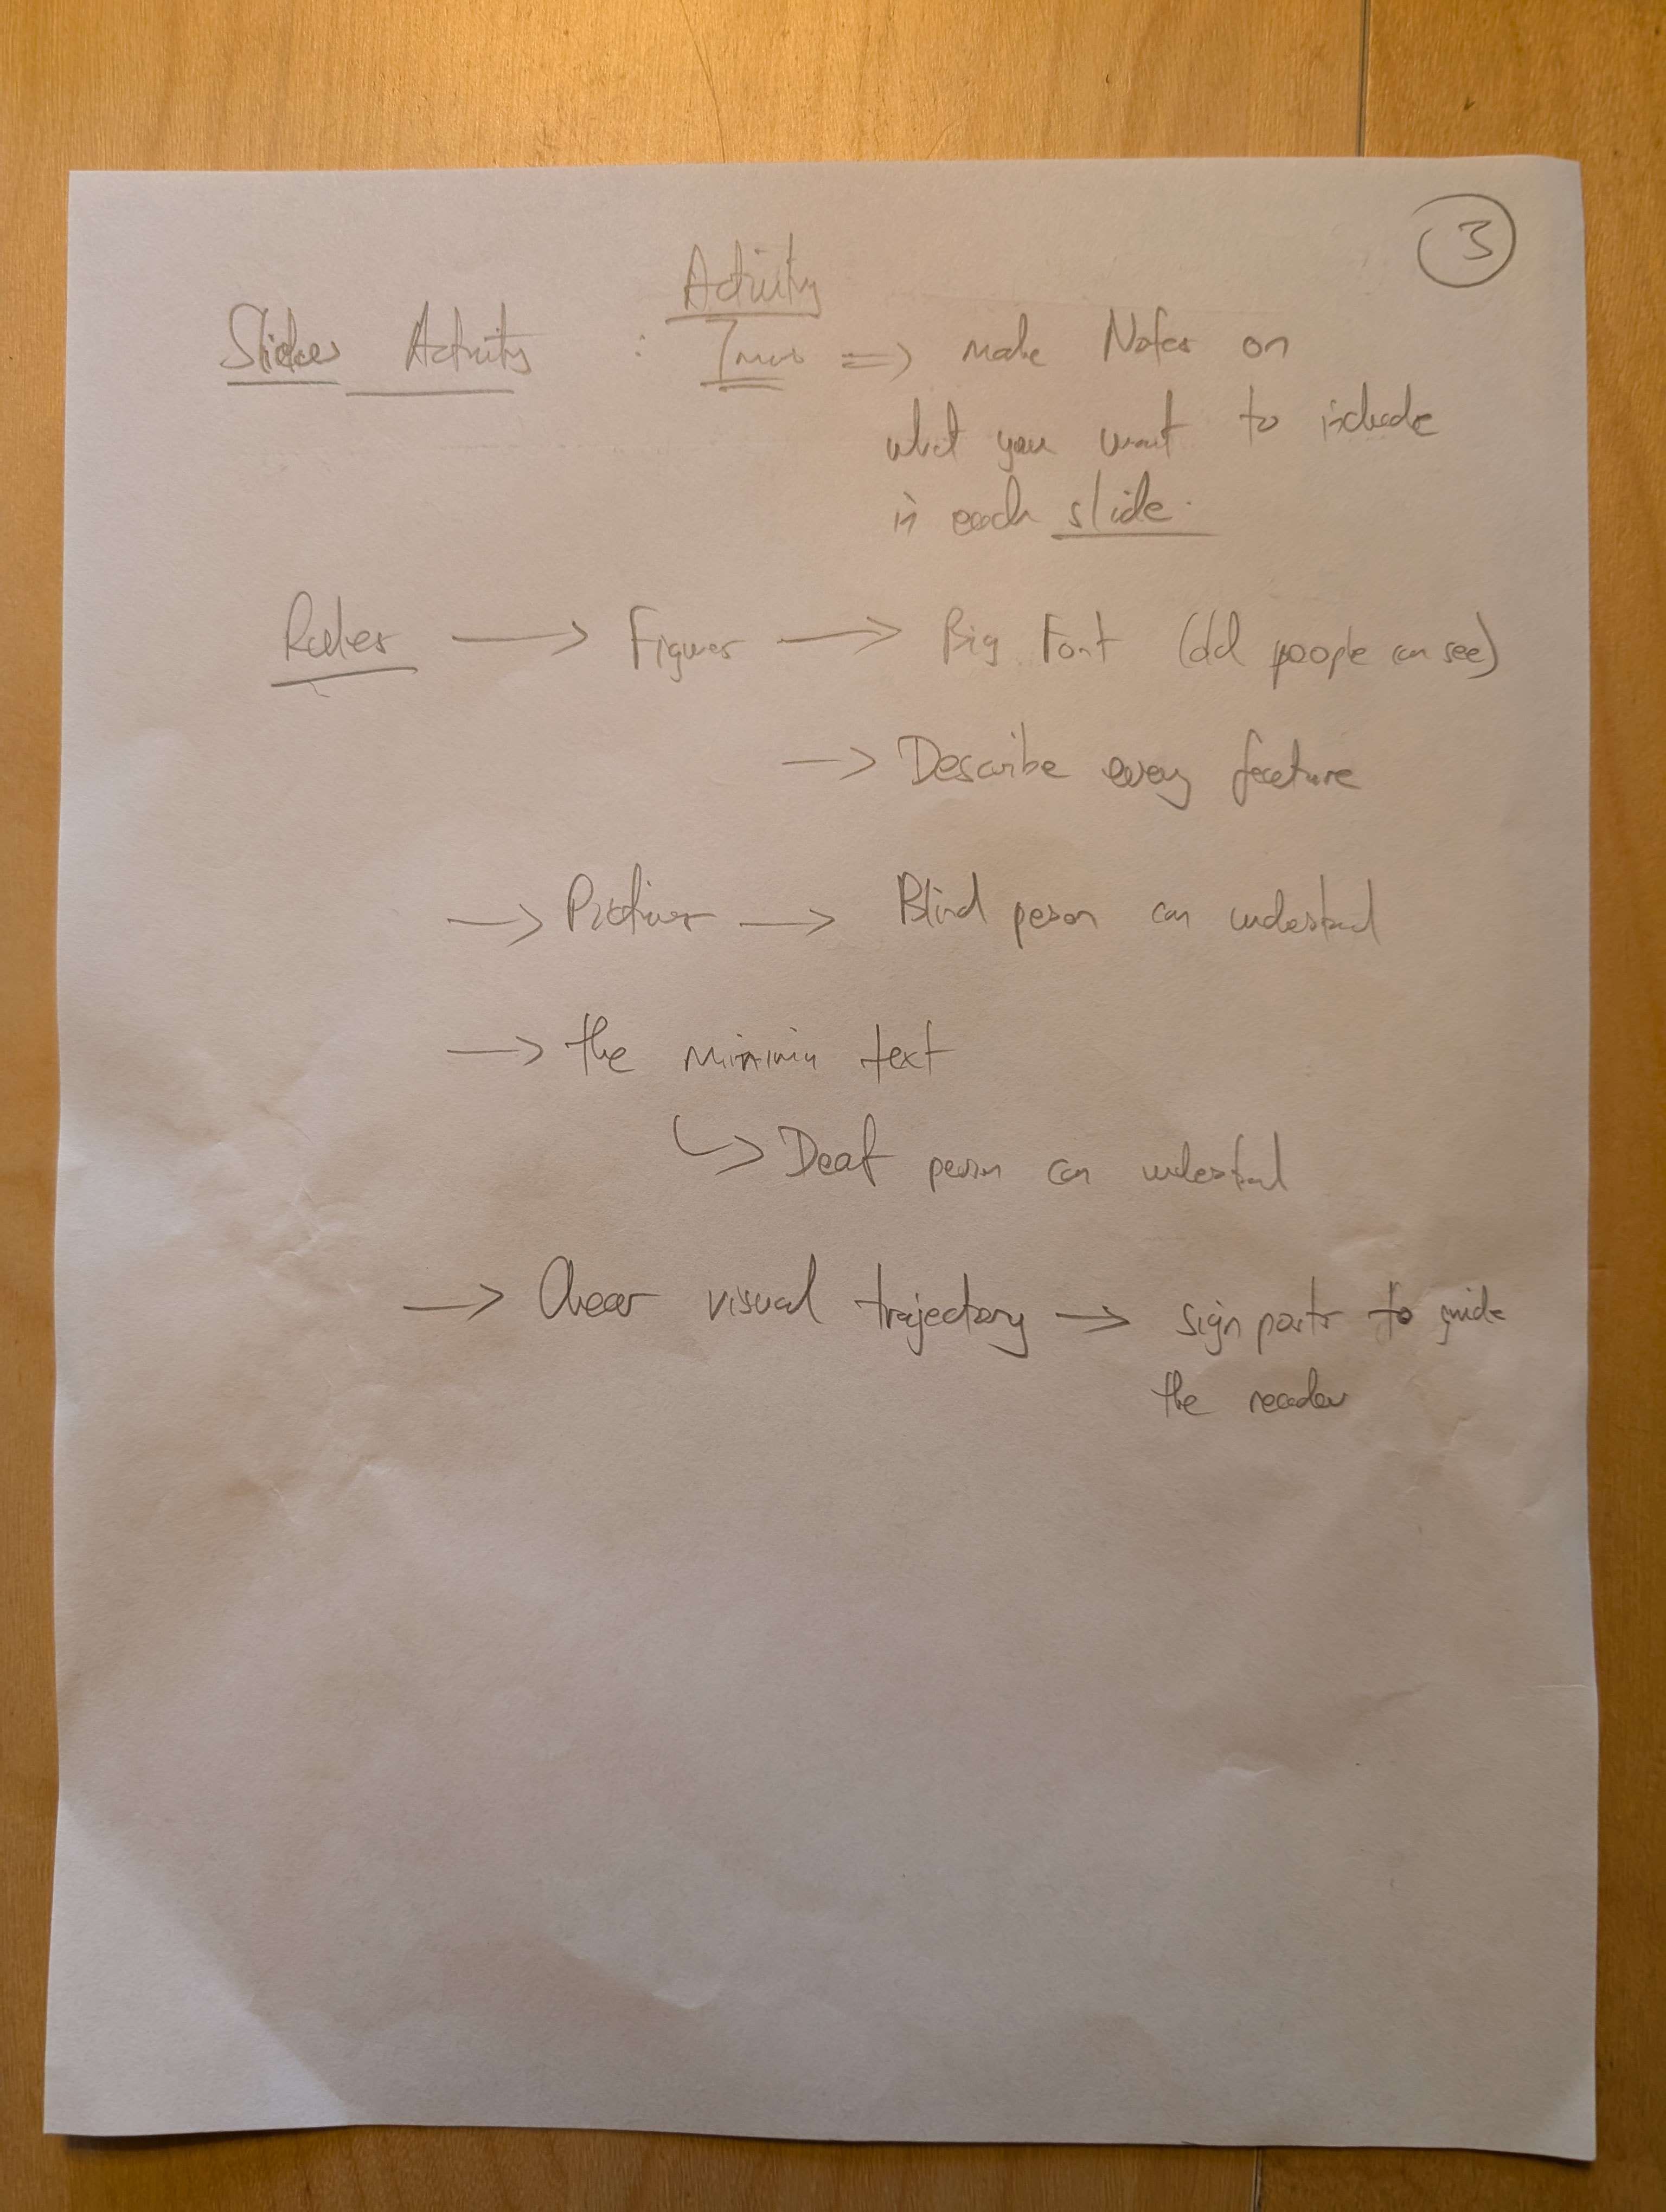 3
Activity
Slides Activity : 7 mins => make Notes on
what you want to include
in each slide.
Rules → Figures → Big Font (old people can see)
→ Describe every feature
→ Pictures → Blind person can understand
→ the minimum text
↳ Deaf person can understand
→ Clear visual trajectory → sign posts to guide
the reader